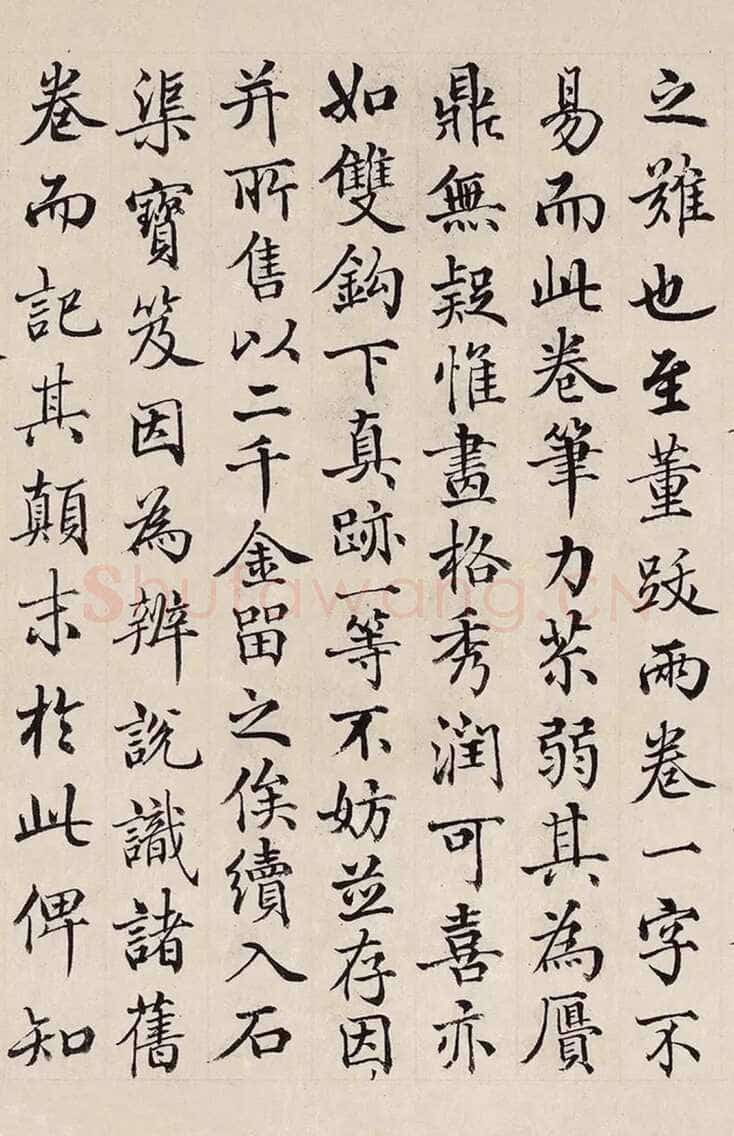 之難也至董跋兩卷一字不
易而此卷筆力苶弱其為贋
鼎無疑惟畫格秀潤可喜亦
如雙鈎下真跡一等不妨並存因
并所售以二千金留之俟續入石
渠寶笈因為辨說識諸舊
卷而記其顛末於此俾知
Shufawang.CN